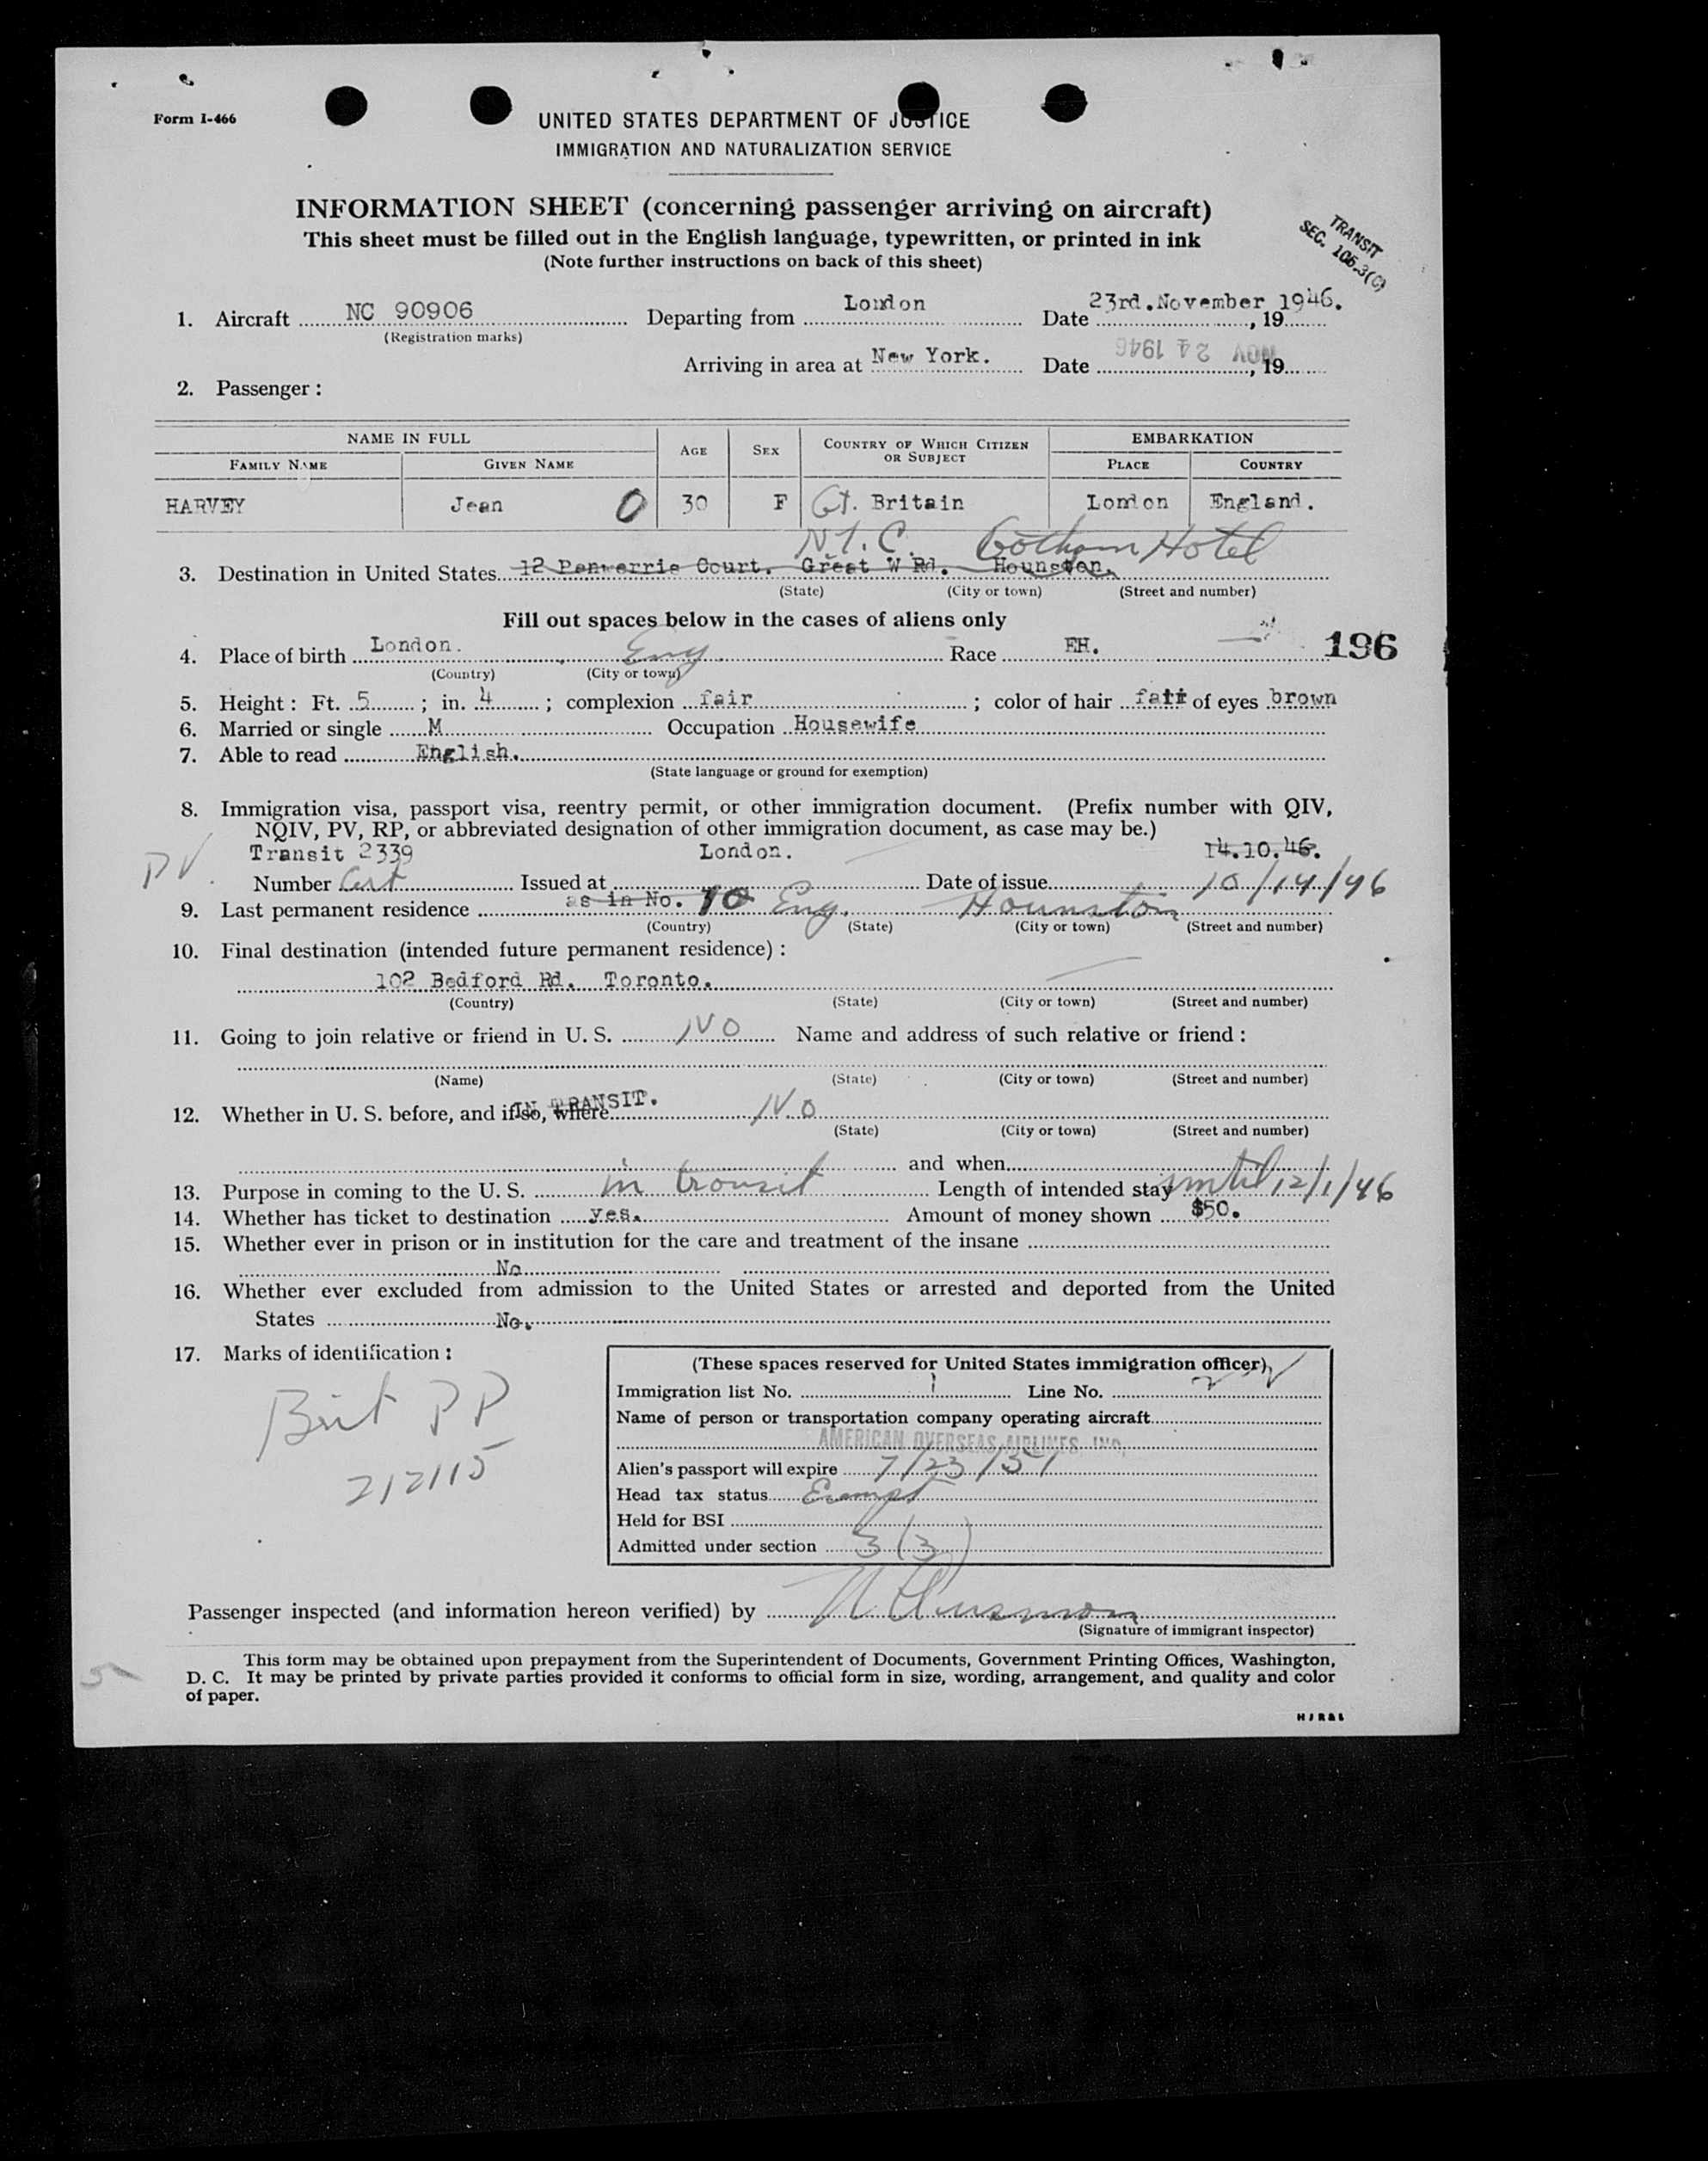 Form I-466
UNITED STATES DEPARTMENT OF JUSTICE
IMMIGRATION AND NATURALIZATION SERVICE
INFORMATION SHEET (concerning passenger arriving on aircraft)
This sheet must be filled out in the English language, typewritten, or printed in ink
(Note further instructions on back of this sheet)
TRANSIT
SEC. 106.3(C)
1. Aircraft NC 90906 Departing from London Date 23rd.November 1946. , 19
(Registration marks)
Arriving in area at New York. Date NOV 24 1946 , 19
2. Passenger :
NAME IN FULL AGE SEX COUNTRY OF WHICH CITIZEN OR SUBJECT EMBARKATION
FAMILY NAME GIVEN NAME PLACE COUNTRY
HARVEY Jean 0 30 F Gt. Britain London England.
Gotham Hotel
3. Destination in United States 12 Penwerris Court. Great W Rd. Hounston.
(State) (City or town) (Street and number)
Fill out spaces below in the cases of aliens only
4. Place of birth London. Eng Race EH. 196
(Country) (City or town)
5. Height : Ft. 5 ; in. 4 ; complexion fair ; color of hair fair of eyes brown
6. Married or single M Occupation Housewife
7. Able to read English.
(State language or ground for exemption)
8. Immigration visa, passport visa, reentry permit, or other immigration document. (Prefix number with QIV,
NQIV, PV, RP, or abbreviated designation of other immigration document, as case may be.)
Transit 2339 London. 14.10.46.
PV Number Cert Issued at Date of issue 10/14/46
9. Last permanent residence as in No. 10 Eng. Hounston
(Country) (State) (City or town) (Street and number)
10. Final destination (intended future permanent residence) :
102 Bedford Rd. Toronto.
(Country) (State) (City or town) (Street and number)
11. Going to join relative or friend in U. S. NO Name and address of such relative or friend :
(Name) (State) (City or town) (Street and number)
IN TRANSIT.
12. Whether in U. S. before, and if so, where NO
(State) (City or town) (Street and number)
and when
13. Purpose in coming to the U. S. in transit Length of intended stay until 12/1/46
14. Whether has ticket to destination yes. Amount of money shown $50.
15. Whether ever in prison or in institution for the care and treatment of the insane
No
16. Whether ever excluded from admission to the United States or arrested and deported from the United
States No.
17. Marks of identification :
Brit PP
212115
(These spaces reserved for United States immigration officer)
Immigration list No. 1 Line No. 2
Name of person or transportation company operating aircraft
AMERICAN OVERSEAS AIRLINES, INC.
Alien's passport will expire 7/23/51
Head tax status Exempt
Held for BSI
Admitted under section 3(3)
Passenger inspected (and information hereon verified) by
(Signature of immigrant inspector)
This form may be obtained upon prepayment from the Superintendent of Documents, Government Printing Offices, Washington,
D. C. It may be printed by private parties provided it conforms to official form in size, wording, arrangement, and quality and color
of paper.
5